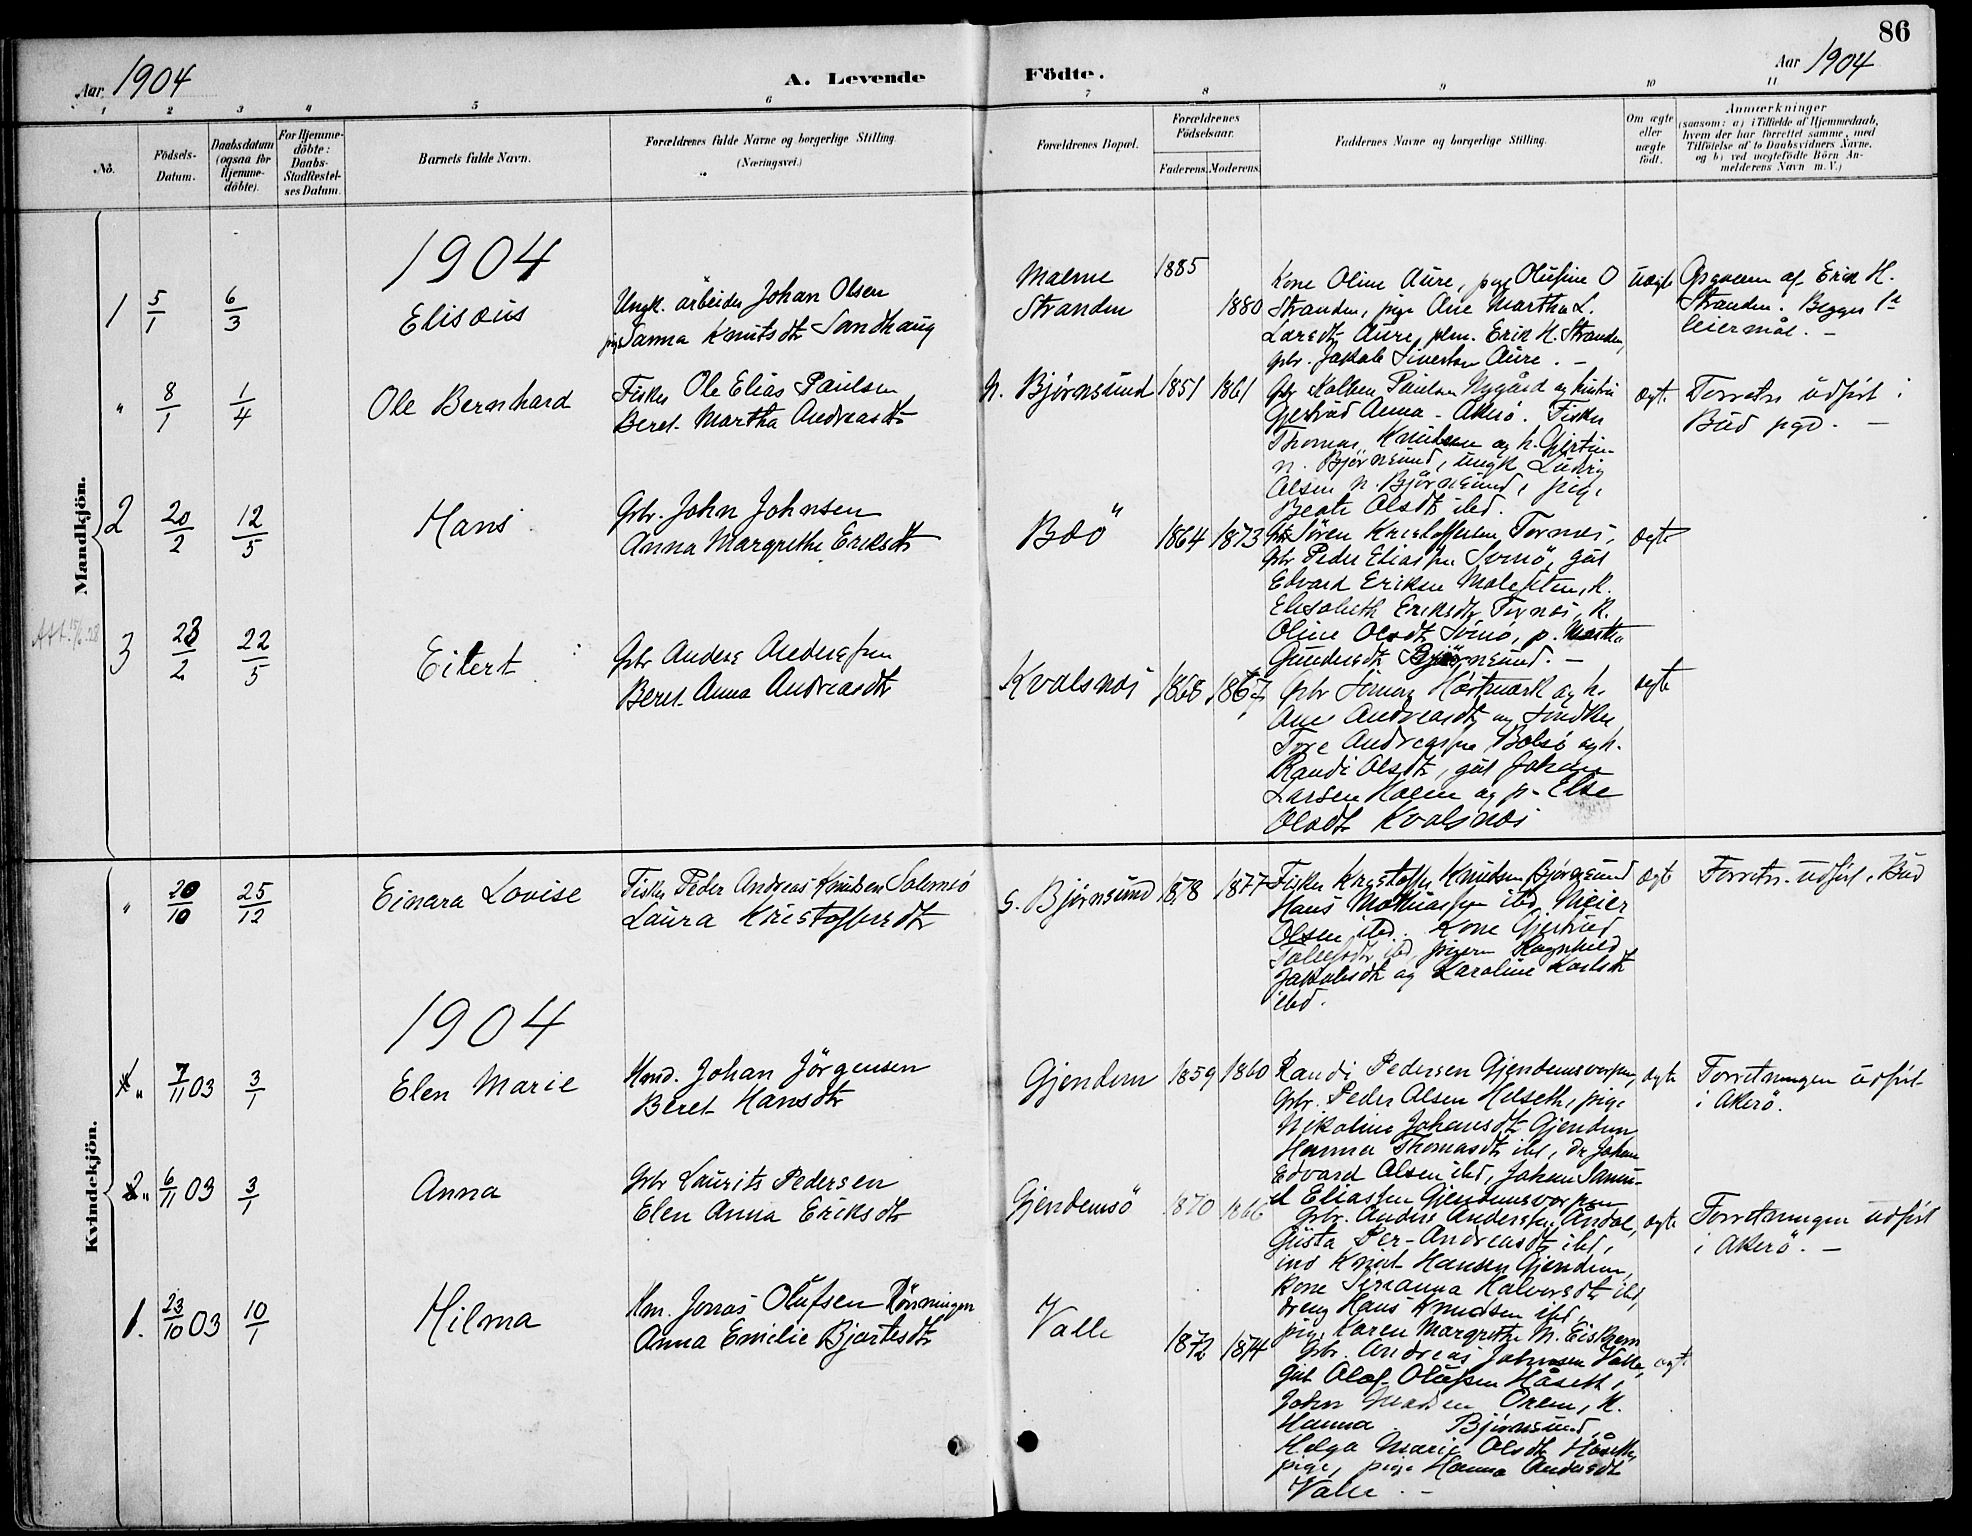 86
Aar 1904
A. Levende Födte.
Aar 1904
1 2 3 4 5 6 7 8 9 10 11
No.
Födsels-Datum.
Daabsdatum (ogsaa for Hjemme-döbte).
For Hjemme-döbte: Daabs-Stadfæstel-ses Datum.
Barnets fulde Navn.
Forældrenes fulde Navne og borgerlige Stilling. (Næringsvei.)
Forældrenes Bopæl.
Forældrenes Födselsaar.
Faderens. Moderens.
Faddernes Navne og borgerlige Stilling.
Om ægte eller uægte födt.
Anmærkninger
(saasom: a) i Tilfælde af Hjemmedaab, hvem der har forrettet samme, med Tilföielse af to Daabsvidners Navne, og b) ved uægtefödte Börn An-melderens Navn m. V.)
Mandkjön.
1904
1 5/1 6/3
Elisæus
Ungk. arbeider Johan Olsen
pige Sanna Knutsdtr Sandhaug
Malme
Stranden
1885
1880
Kone Oline Aure, pige Olufine O
Stranden, pige Ane Martha L.
Larsdtr Aure, plm. Erik H. Stranden,
gbr. Jakob Sivertsen Aure. -
uægte
Opgaven af Erik H.
Stranden. Begges 1ste
leiermål. -
" 8/1 1/4
Ole Bernhard
Fisker Ole Elias Paulsen
Beret Martha Andreasdtr
N. Bjørnsund
1851 1861
Gbr Kolben Paulsen Nygård og hustru
Gjertrud Anna - Akerö. Fisker
Thomas Knudsen og h. Gjertine
N. Bjørnsund, ungk Ludvig
Olsen N. Bjørnsund, pige
Beate Olsdtr ibd.
ægte
Forretn udført i
Bud pgd. -
2 20/2 12/5
Hans
Gbr. John Johnsen
Anna Margrethe Eriksdtr
Bøö
1864 1873
Gbr Sören Kristoffersen Tornes,
gbr Peder Eliassen Sørnö, gut
Edvard Eriksen Malefeten, K.
Elisabeth Eriksdtr Tornes, K.
Oline Olsdtr Sørnö, p. Martha
Gundersdtr Bjørnsund. -
ægte
Att. 15/6.28
3 23/2 22/5
Eilert
Gbr Anders Anderssen
Beret Anna Andreasdtr
Kvalsnes
1868 1867
Gbr Simon Hostmark og h.
Ane Andreasdtr og
Tore Andreassen Bolsö og h.
Randi Olsdtr, gut Johan
Larsen Holen og p. Else
Olsdtr Kvalsnes
ægte
Kvindekjön.
" 20/10 25/12
Einara Lovise
Fisker Peder Andreas Knudsen Salemsö
Laura Kristoffersdtr
S. Bjørnsund
1878 1877
Fisker Kristoffer Knudsen Bjørnsund
Hans Mathiassen ibd, Meier
Olsen ibd. Kone Gjertrud
Tollefsdtr ibd, pigerne Ragnhild
Jakobsdtr og Karoline Karlsdtr
ibd.
ægte
Forretn. udført i Bud
1904
" 7/11 03 3/1
Elen Marie
Kmd. Johan Jörgensen
Beret Hansdtr
Gjendem
1859 1860
Randi Pedersen Gjendemsvorpen,
Gbr. Peder Olsen Helseth, pige
Nikoline Johansdtr Gjendem
Hanna Thomasdtr ibd, Dr. Johan
Edvard Olsen ibd, Johan Samu-
el Eliassen Gjendemsvorpen
ægte
Forretningen udført
i Akerö.
2 " 6/11 03 3/1
Anna
Gbr Laurits Pedersen
Elen Anna Eriksdtr
Gjendemsö
1870 1866
Gbr. Anders Anderssen Andal,
Gjista Per-Andreasdtr ibd,
ind Knut Hansen Gjendem,
Kone Serianna Halvorsdtr ibd,
dreng Hans Knudsen ibd,
pige Karen Margrethe N. Eiskrem
ægte
Forretningen udført
i Akerö. -
1. 23/10 03 10/1
Hilma
Km. Jonas Olufsen Rönningen
Anna Emilie Bjartesdtr
Valle
1872 1874
Gbr. Andreas Johnsen Valle,
gut Olaf Olufsen Håseth,
John Madsen Orem, K.
Hanna Bjørnsund,
Helga Marie Olsdtr Håseth,
pige, pige Hanna Andersdtr
Valle. -
ægte